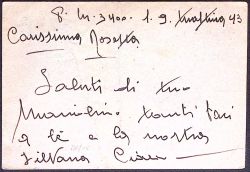 P. M. 3400. 1. 9. 43
Carissima Rosetta
Saluti di tuo
tanti
a te e la nostra
Silvana Ciao